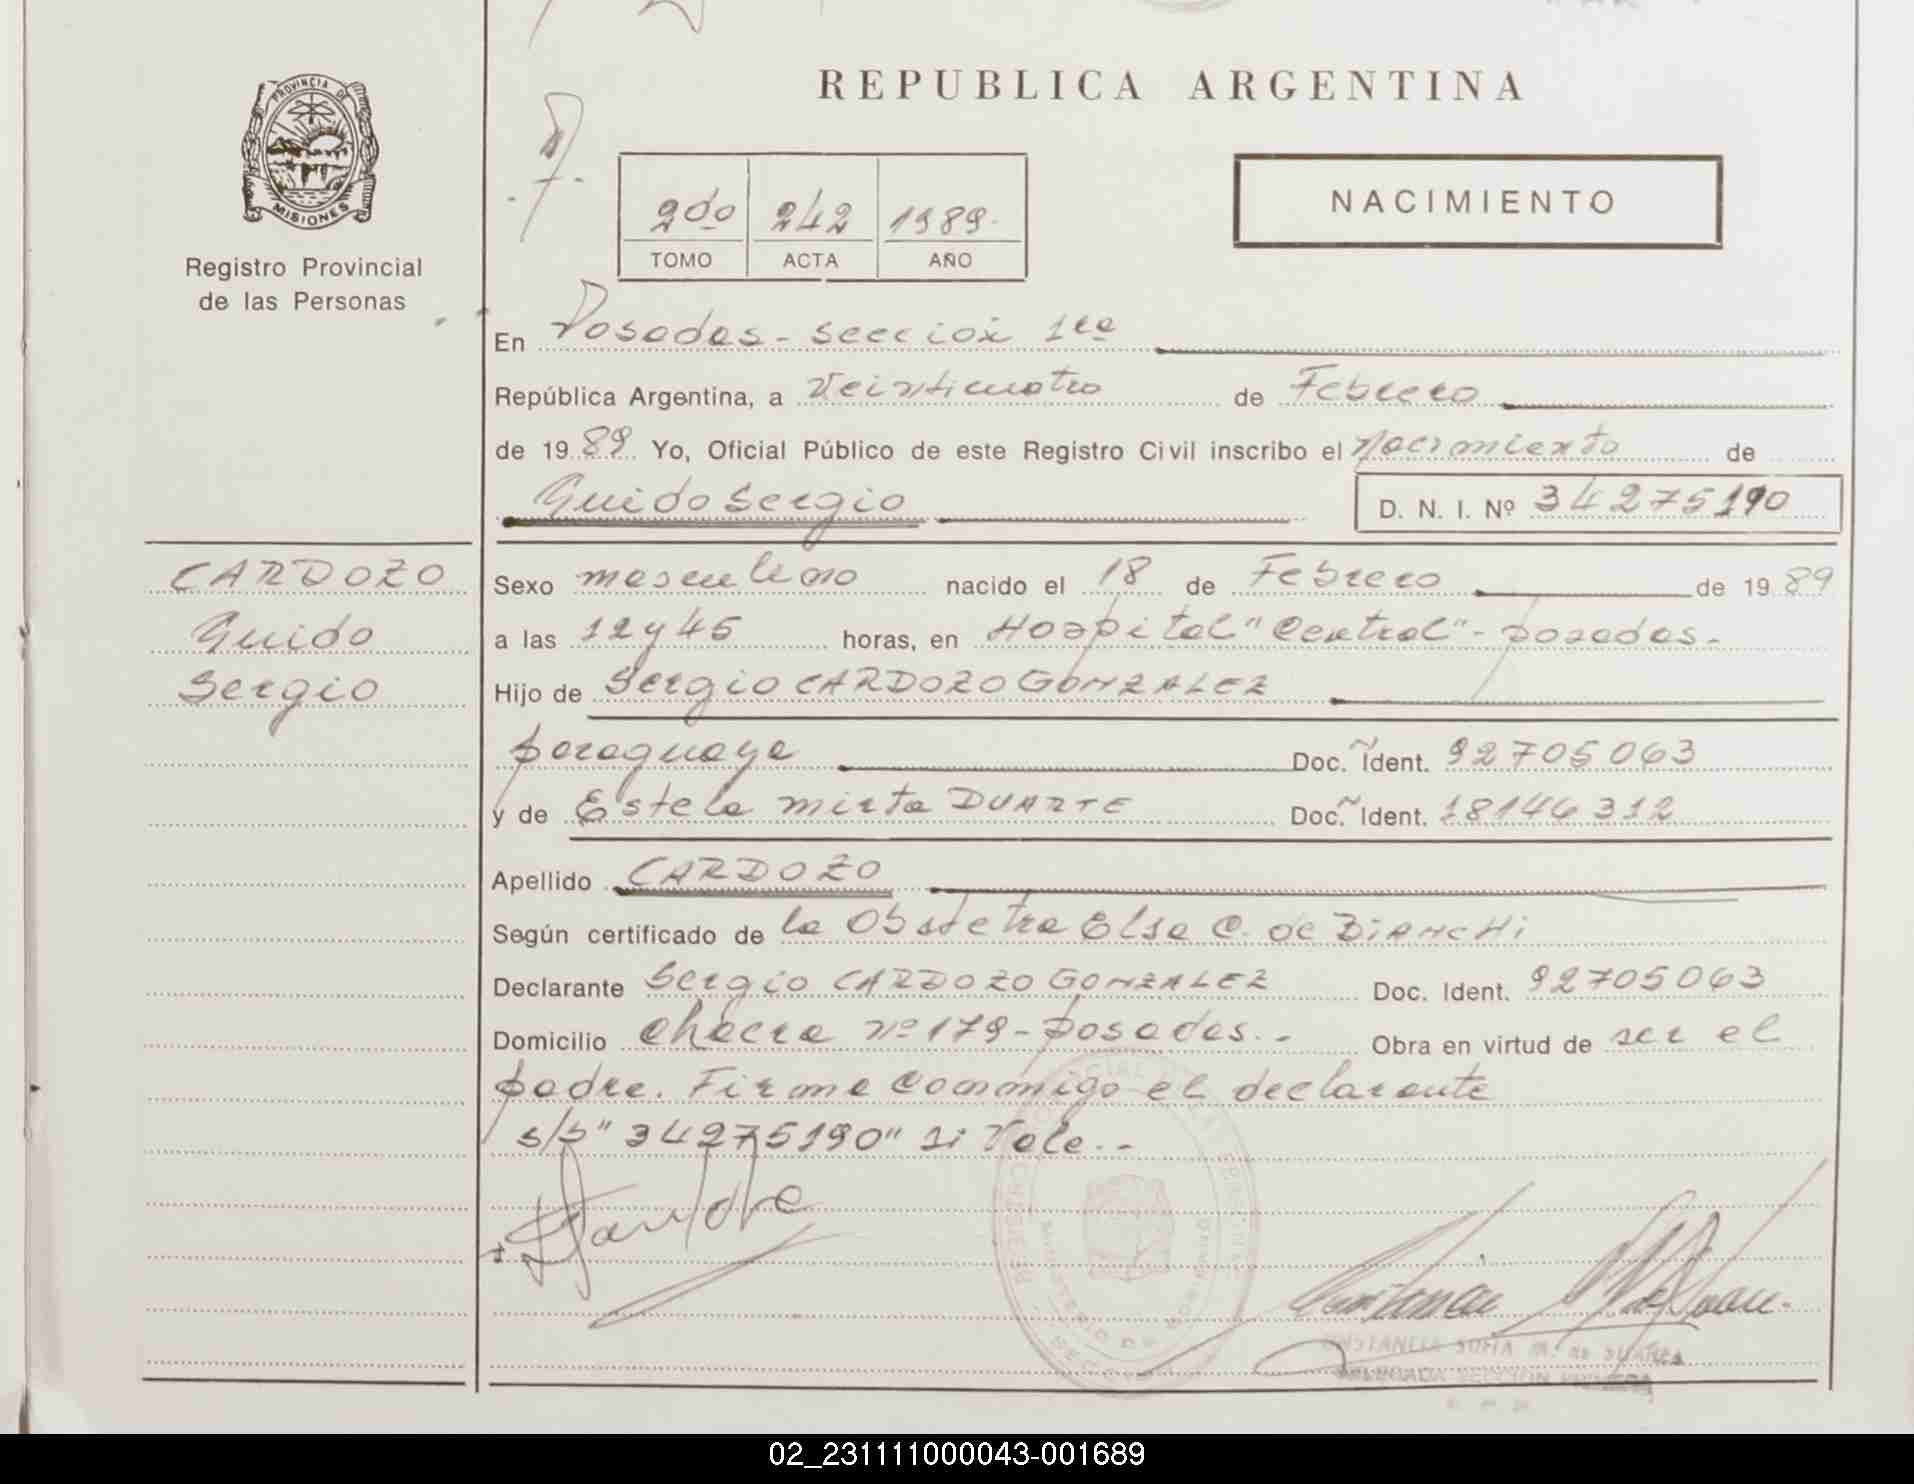 REPUBLICA ARGENTINA
PROVINCIA DE
MISIONES
Registro Provincial
de las Personas
2do 242 1989.
TOMO ACTA AÑO
NACIMIENTO
En Posadas - sección 1ra
República Argentina, a Veinticuatro de Febrero
de 1989 Yo, Oficial Público de este Registro Civil inscribo el Nacimiento de
Guido Sergio D. N. I. Nº 34275190
CARDOZO
Guido
Sergio
Sexo masculino nacido el 18 de Febrero de 1989
a las 12 y 45 horas, en Hospital "Central" - posadas -
Hijo de Sergio CARDOZO GONZALEZ
paraguaya Doc. Ident. 92705063
y de Estela mirta DUARTE Doc. Ident. 18146312
Apellido CARDOZO
Según certificado de la Obstetra Elsa C. de BIANCHI
Declarante Sergio CARDOZO GONZALEZ Doc. Ident. 92705063
Domicilio chacra Nº 179 - posadas. - Obra en virtud de ser el
padre. Firma conmigo el declarante
s/b "34275190" si Vale. -
REGISTRO
MINISTERIO DE GOBIERNO
SOFIA M. de SUAREZ
DELEGADA SECCION PRIMERA
02_231111000043-001689